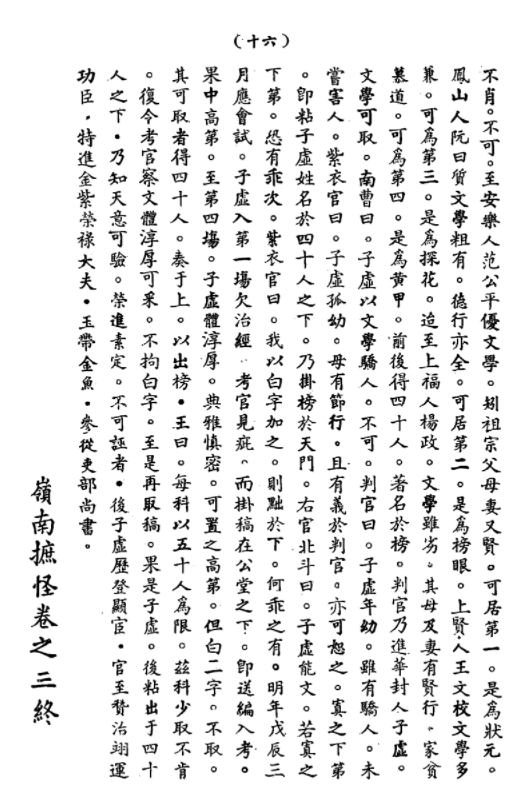 (十六)
不肖。不可。至安樂人范公平優文學。矧祖宗父母妻又賢。可居第一。是爲狀元。
鳳山人阮曰質文學粗有。德行亦全。可居第二。是爲榜眼。上賢人王文校文學多
兼。可爲第三。是爲探花。迨至上福人楊政。文學雖劣。其母及妻有賢行。家貧
慕道。可爲第四。是爲黄甲。前後得四十人。著名於榜。判官乃進華封人子虛。
文學可取。南曹曰。子虛以文學驕人。不可。判官曰。子虛年幼。雖有驕人。未
嘗害人。紫衣官曰。子虛孤幼。母有節行。且有義於判官。亦可恕之。寘之下第
。卽粘子虛姓名於四十人之下。乃掛榜於天門。右官北斗曰。子虛能文。若寘之
下第。恐有乖次。紫衣官曰。我以白字加之。則黜於下。何乖之有。明年戊辰三
月應會試。子虛入第一場欠治經。考官見疵。而掛稿在公堂之下。卽送編入考。
果中高第。至第四場。子虛體淳厚。典雅慎密。可置之高第。但白二字。不取。
其可取者得四十人。奏于上。以出榜。王曰。每科以五十人爲限。茲科少取不肯
。復令考官察文體淳厚可采。不拘白字。至是再取稿。果是子虛。後粘出于四十
人之下。乃知天意可驗。榮進素定。不可誣者。後子虛歷登顯宦。官至贊治翊運
功臣，特進金紫榮祿大夫。玉帶金魚。參從吏部尚書。
嶺南摭怪卷之三終